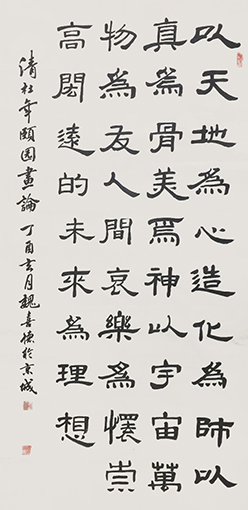 以天地為心造化為師以
真為骨美為神以宇宙萬
物為友人間哀樂為懷崇
高閎遠的未來為理想
清松年頤園畫論 丁酉玄月魏喜德於京城